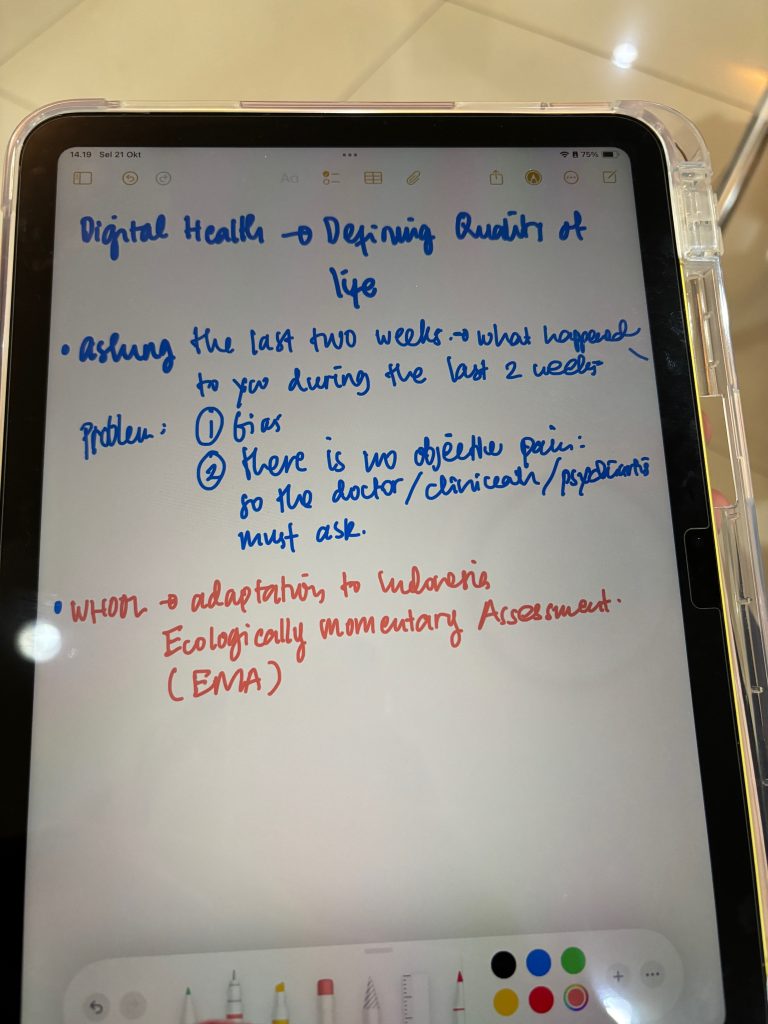 14.19 Sel 21 Okt
75%
Aa
Digital Health → Defining Quality of
life
• asking the last two weeks. → what happened
to you during the last 2 weeks
Problem: ① bias
② there is no objective pain:
so the doctor/
must ask.
• → adaptation to Indonesia
Ecologically momentary Assessment.
(EMA)